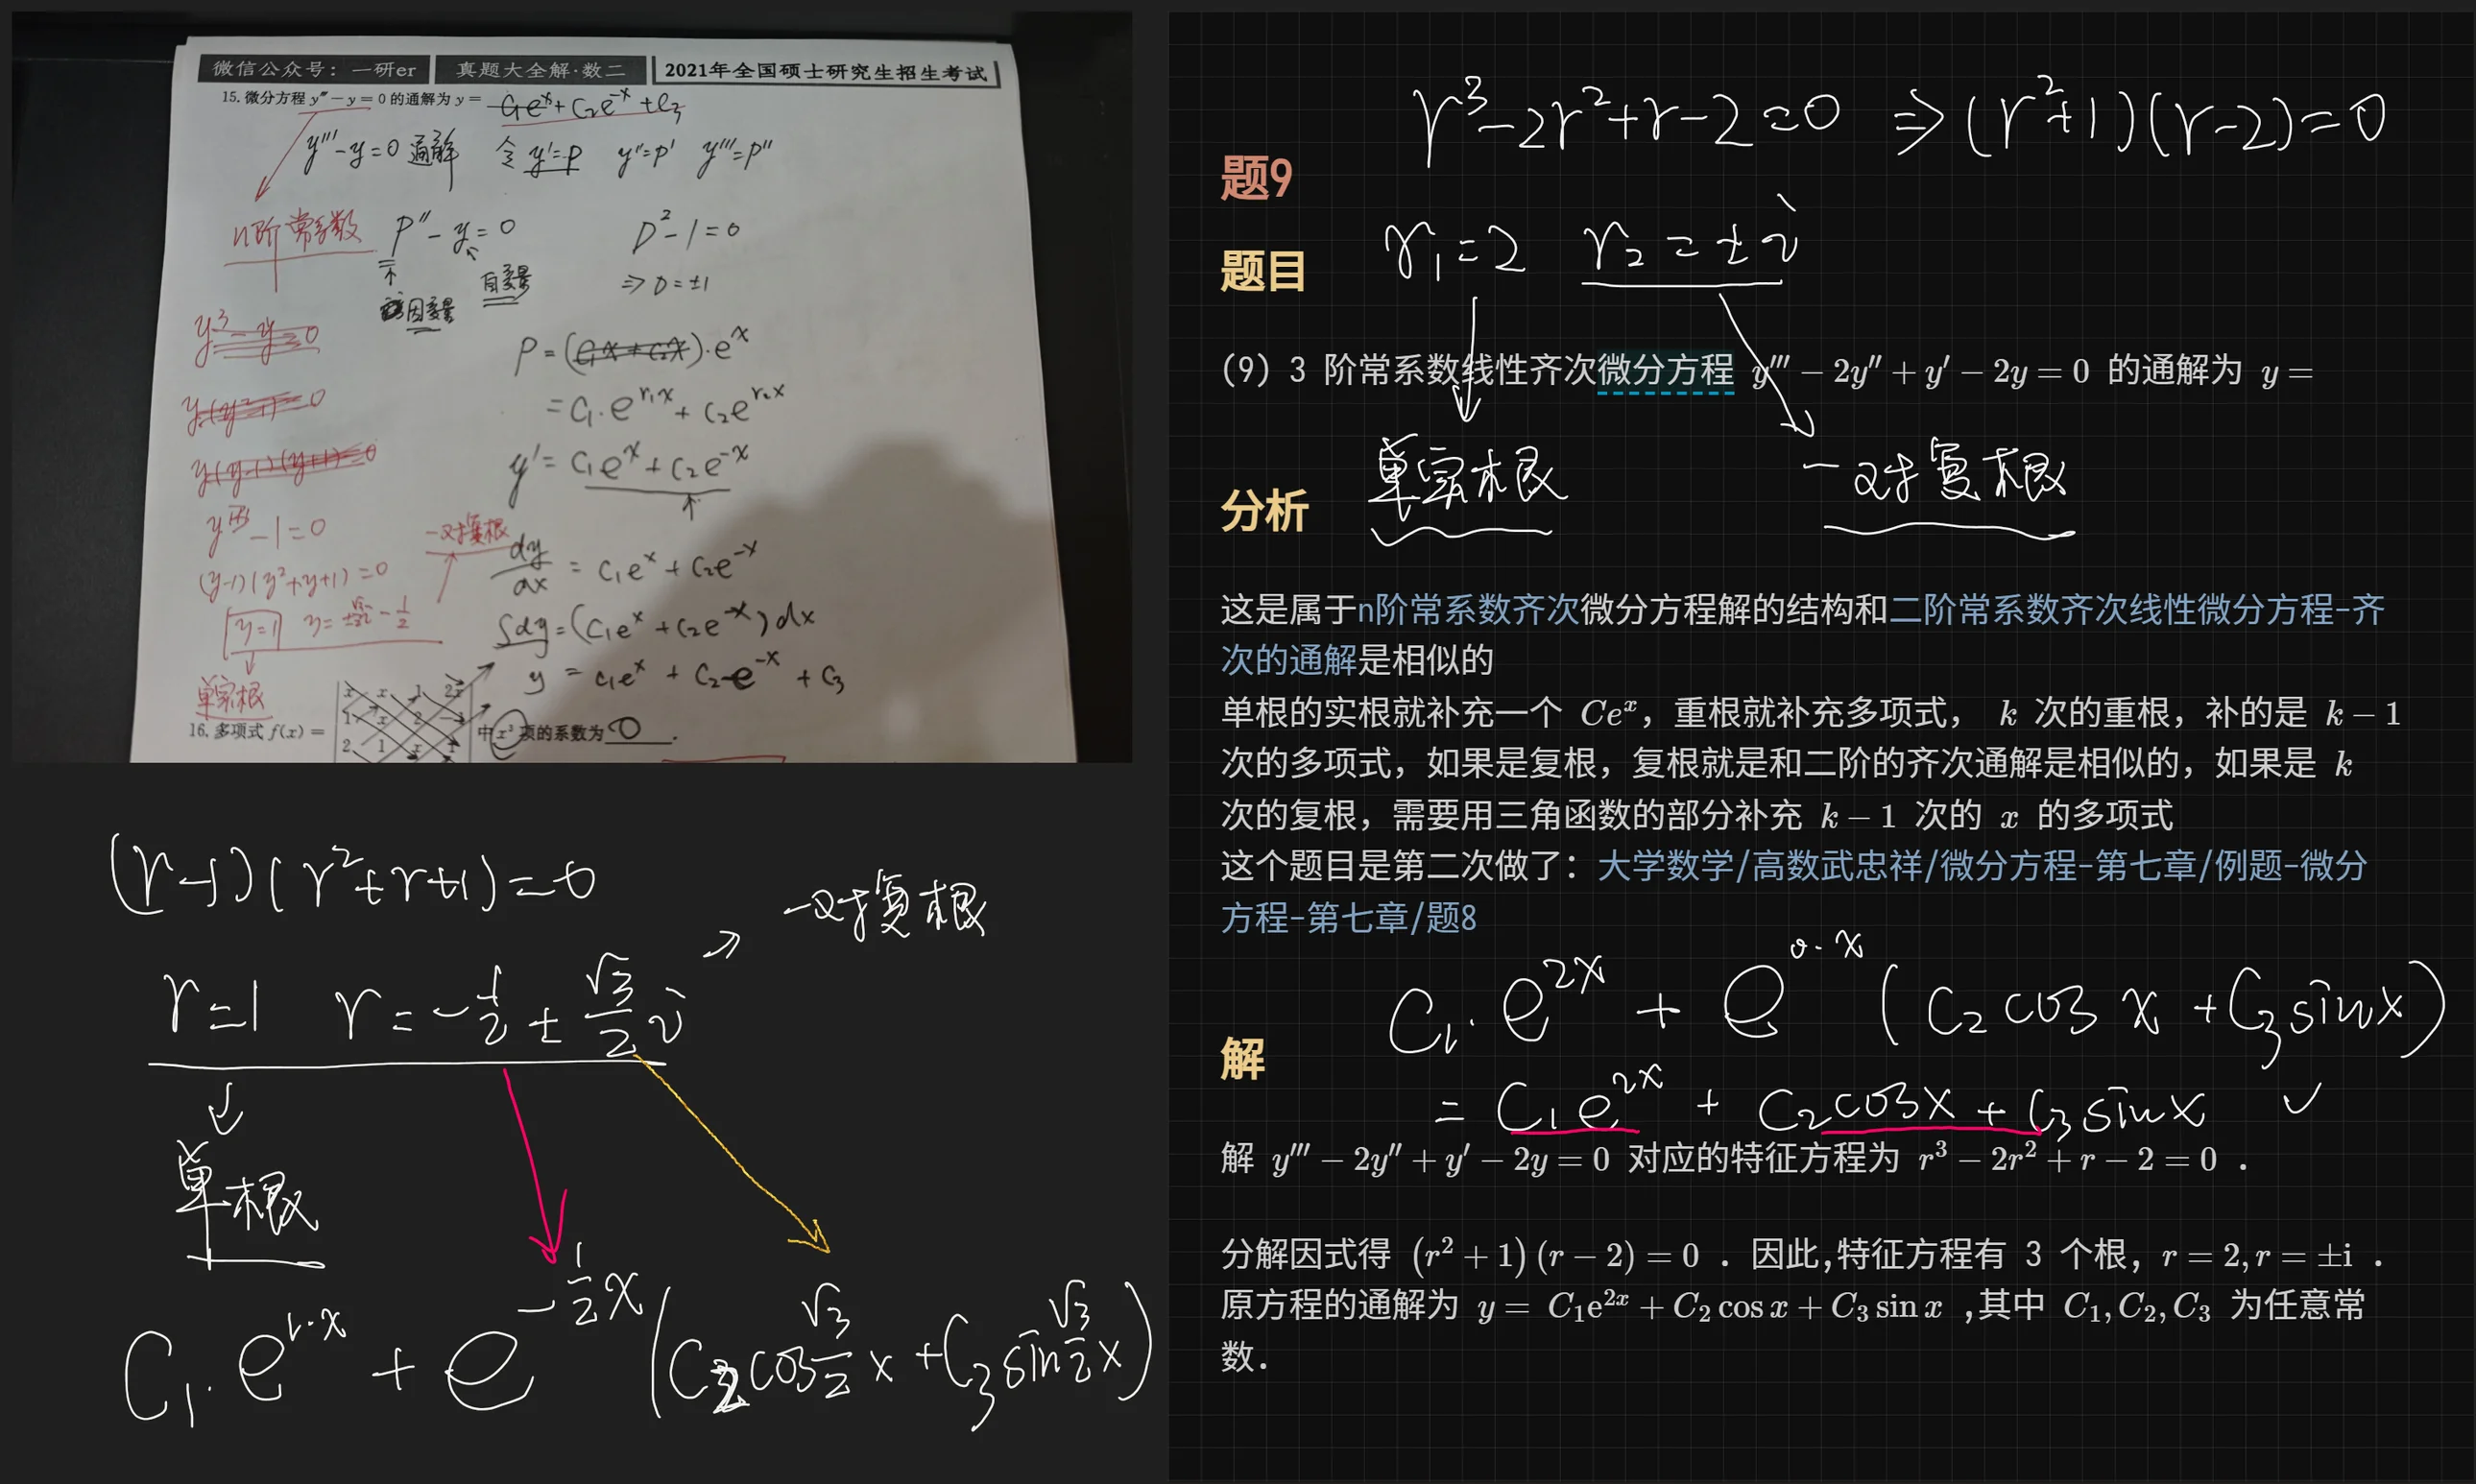 微信公众号：一研er 真题大全解·数二 2021年全国硕士研究生招生考试
15. 微分方程 y''' − y = 0 的通解为 y = C₁eˣ + C₂e⁻ˣ + C₃
y''' − y = 0 通解 令 y' = p y'' = p' y''' = p''
n阶常系数 p'' − y = 0 D² − 1 = 0
自变量 ⇒ D = ±1
因变量
y³ − y = 0
P = (C₁x + C₂x)·eˣ
y(y²−1) = 0
= C₁·e^{r₁x} + C₂e^{r₂x}
y(y−1)(y+1) = 0
y' = C₁eˣ + C₂e⁻ˣ
− 1 = 0
一对复根
dy/dx = C₁eˣ + C₂e⁻ˣ
(y−1)(y²+y+1) = 0
y=1 y = ±√3/2 i − 1/2
∫dy = (C₁eˣ + C₂e⁻ˣ)dx
y = C₁eˣ + C₂e⁻ˣ + C₃
单实根
x x 1 2x
1 x 2 −1
2 1 x 1
16. 多项式 f(x) = 中 x³ 项的系数为 0 .
(r−1)(r²+r+1) = 0
一对复根
r=1 r = −1/2 ± √3/2 i
单根
C₁·e^{1·x} + e^{−1/2 x}(C₂cos √3/2 x + C₃sin √3/2 x)
r³ − 2r² + r − 2 = 0 ⇒ (r²+1)(r−2) = 0
题9
r₁ = 2 r₂ = ±i
题目
（9）3 阶常系数线性齐次微分方程 y''' − 2y'' + y' − 2y = 0 的通解为 y =
单实根 一对复根
分析
这是属于n阶常系数齐次微分方程解的结构和二阶常系数齐次线性微分方程-齐
次的通解是相似的
单根的实根就补充一个 Ceˣ，重根就补充多项式， k 次的重根，补的是 k − 1
次的多项式，如果是复根，复根就是和二阶的齐次通解是相似的，如果是 k
次的复根，需要用三角函数的部分补充 k − 1 次的 x 的多项式
这个题目是第二次做了：大学数学/高数武忠祥/微分方程-第七章/例题-微分
方程-第七章/题8
C₁·e^{2x} + e^{0·x}(C₂cos x + C₃sin x)
解
= C₁e^{2x} + C₂cosx + C₃sinx ✓
解 y''' − 2y'' + y' − 2y = 0 对应的特征方程为 r³ − 2r² + r − 2 = 0 .
分解因式得 (r² + 1)(r − 2) = 0 . 因此,特征方程有 3 个根, r = 2, r = ±i .
原方程的通解为 y = C₁e^{2x} + C₂ cos x + C₃ sin x ,其中 C₁, C₂, C₃ 为任意常
数.